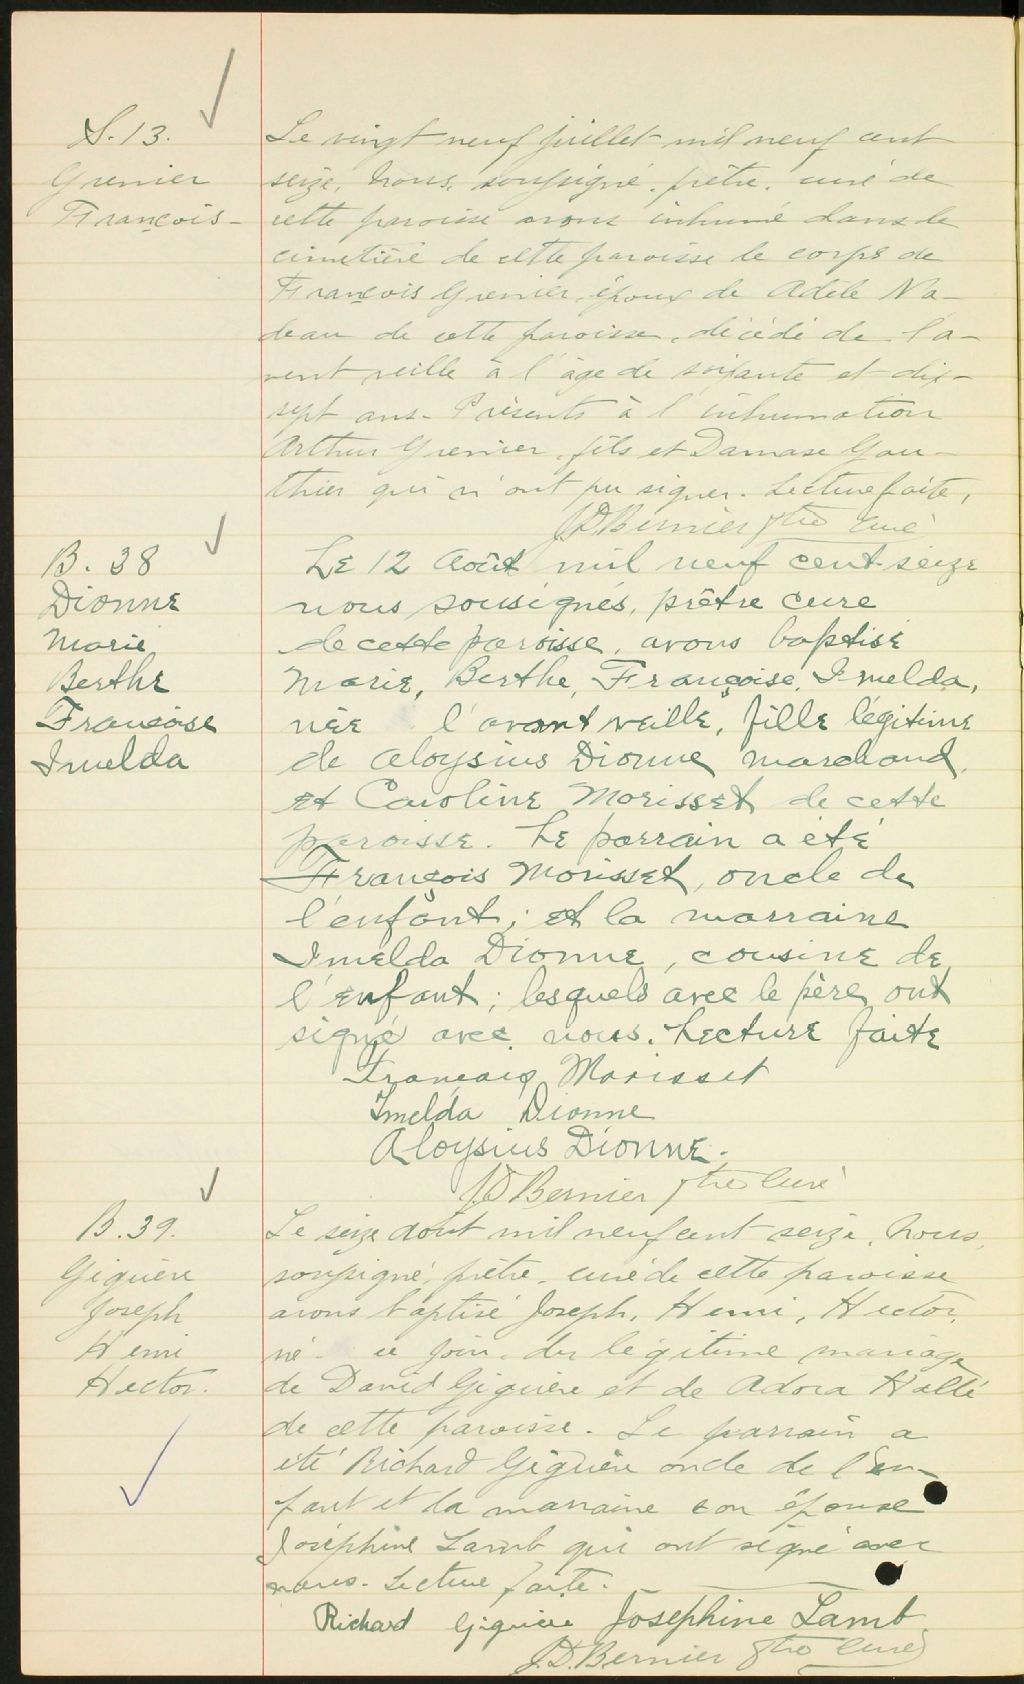 S. 13.
Grenier
François -
Le vingt neuf juillet mil neuf cent
seize, nous, soussigné, prêtre, curé de
cette paroisse avons inhumé dans le
cimetière de cette paroisse le corps de
François Grenier, époux de Adèle Na-
deau de cette paroisse, décédé de l'a-
vent veille à l'âge de soixante et dix-
sept ans. Présents à l'inhumation
Arthur Grenier, fils et Damase Gau-
thier qui n'ont pu signer. Lecture faite,
J.D. Bernier ptre curé
B. 38
Dionne
Marie
Berthe
Françoise
Imelda
Le 12 Août mil neuf cent-seize
nous sousignés, prêtre cure
de cette paroisse, avons baptisé
Marie, Berthe, Françoise, Imelda,
née l'avant veille, fille légitime
de Aloysius Dionne marchand,
et Caroline Morisset de cette
paroisse. Le parrain a été
François Morisset, oncle de
l'enfant; et la marraine
Imelda Dionne, cousine de
l'enfant; lesquels avec le père ont
signé avec nous. Lecture faite
François Morisset
Imelda Dionne
Aloysius Dionne.
J.D Bernier ptre curé
B. 39.
Giguère
Joseph
Henri
Hector.
Le seize août mil neuf cent seize, nous,
soussigné, prêtre, curé de cette paroisse
avons baptisé Joseph, Henri, Hector,
né ce jour, du légitime mariage
de David Giguère et de Adora Hallé
de cette paroisse. Le parrain a
été Richard Giguère oncle de l'en-
fant et la marraine son épouse
Joséphine Lamb qui ont signé avec
nous. Lecture faite.
Richard Giguère Josephine Lamb
J.D. Bernier ptre curé